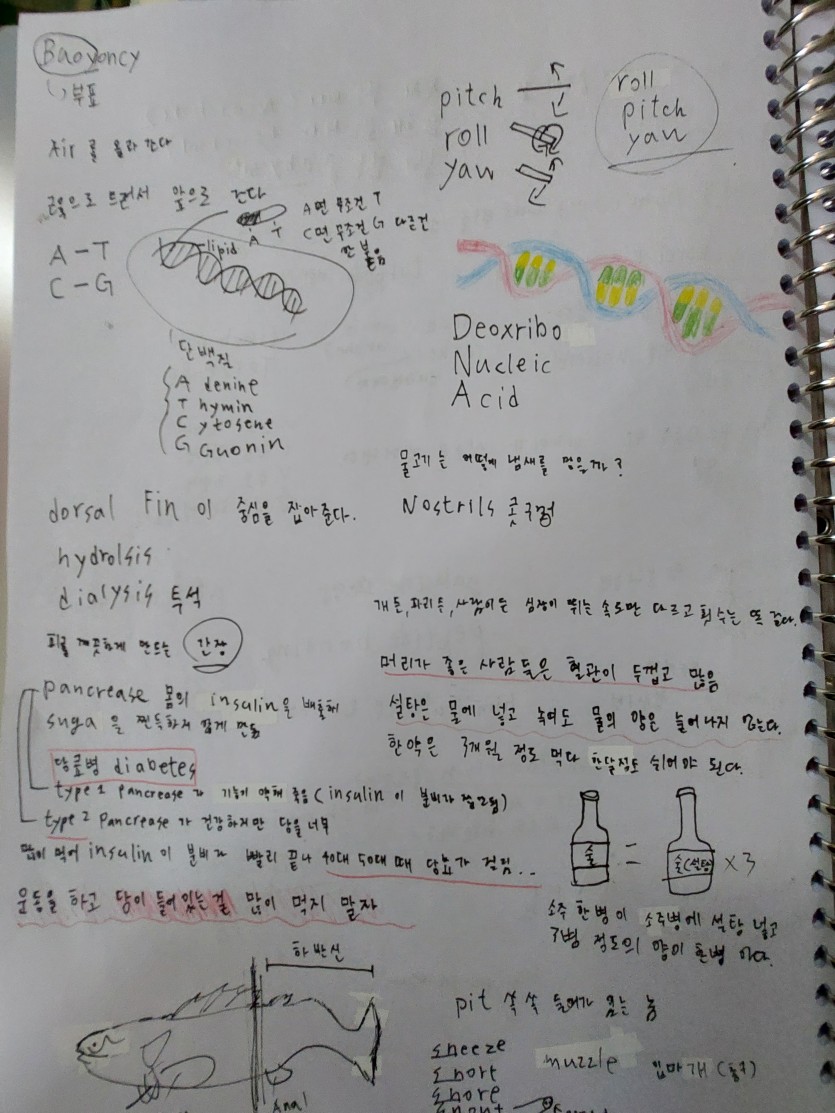 Baoyoncy
부표
Air 를 올라 간다
pitch
roll
yaw
roll
pitch
yaw
앞으로 간다
A-T
C-G
lipid
A T
A면 무조건 T
C면 무조건 G 다른건
안 붙음
단백질
A denine
T hymin
C ytosene
G Guonin
Deoxribo
Nucleic
Acid
물고기는 어떻게 냄새를 맡을까?
Nostrils 콧구멍
dorsal Fin 이 중심을 잡아준다.
hydrolsis
dialysis 투석
피를 깨끗하게 만드는 간장
개든, 파리든, 사람이든 심장이 뛰는 속도만 다르고 횟수는 똑 같다.
머리가 좋은 사람들은 혈관이 두껍고 많음
설탕은 물에 넣고 녹여도 물의 양은 늘어나지 않는다.
한약은 3개월 정도 먹다 한달정도 쉬어야 된다.
pancrease 몸의 insulin을 배출해
suga 을 찐득하지 않게 만듬
당뇨병 diabetes
type 1 pancrease 가 기능이 약해 죽음 (insulin 이 분비가 적으로)
type 2 pancrease 가 건강하지만 당을 너무
많이 먹어 insulin 이 분비가 빨리 끝나 40대 50대 때 당뇨가 걸림...
운동을 하고 당이 들어있는걸 많이 먹지 말자
술 = 술(설탕) x3
소주 한병이 소주병에 설탕 넣고
3병 정도의 양이 한병 이다.
하반신
Anal
pit 쏙 쏙 들어가 있는 놈
sneeze
snort
snore
muzzle 입마개 (동구)